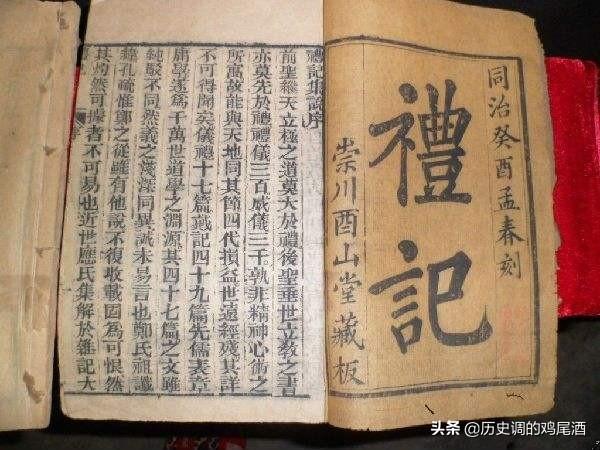 同治癸酉孟春刻
禮記
崇川酉山堂藏板
禮記集說序
前聖繼天立極之道莫大於禮後聖垂世立教之書
亦莫先於禮禮儀三百威儀三千孰非精神心術之
所寓故能與天地同其節四代損益世遠經殘其詳
不可得聞矣儀禮十七篇戴記四十九篇先儒表章
庸學遂爲千萬世道學之淵源其四十七篇之文雖
純駁不同然義之淺深同異誠未易言也鄭氏祖讖
緯孔疏惟鄭之從雖有他說不復收載固爲可恨然
其灼然可據者不可易也近世應氏集解於雜記大
头条 @历史调的鸡尾酒